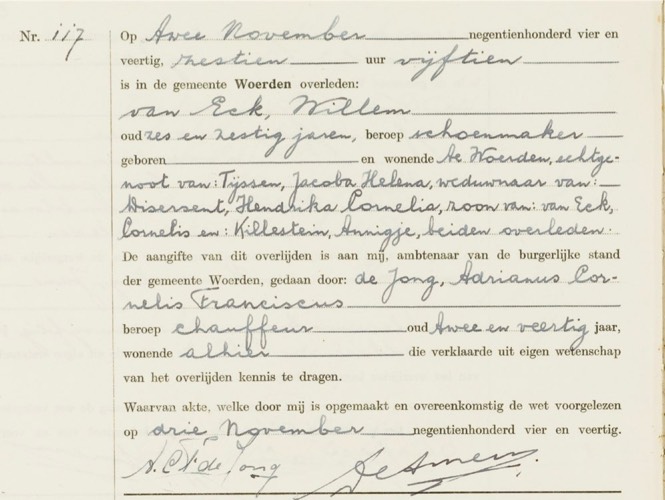 Nr. 117
Op twee November negentienhonderd vier en
veertig, zestien uur vijftien
is in de gemeente Woerden overleden:
van Eck, Willem
oud zes en zestig jaren, beroep schoenmaker
geboren en wonende te Woerden, echtge-
noot van: Tijssen, Jacoba Helena, weduwnaar van:
Disersent, Hendrika Cornelia, zoon van: van Eck,
Cornelis en: Killestein, Annigje, beiden overleden.
De aangifte van dit overlijden is aan mij, ambtenaar van de burgerlijke stand
der gemeente Woerden, gedaan door: de Jong, Adrianus Cor-
nelis Franciscus
beroep chauffeur oud twee en veertig jaar,
wonende alhier die verklaarde uit eigen wetenschap
van het overlijden kennis te dragen.
Waarvan akte, welke door mij is opgemaakt en overeenkomstig de wet voorgelezen
op drie November negentienhonderd vier en veertig.
A.C.F. de Jong